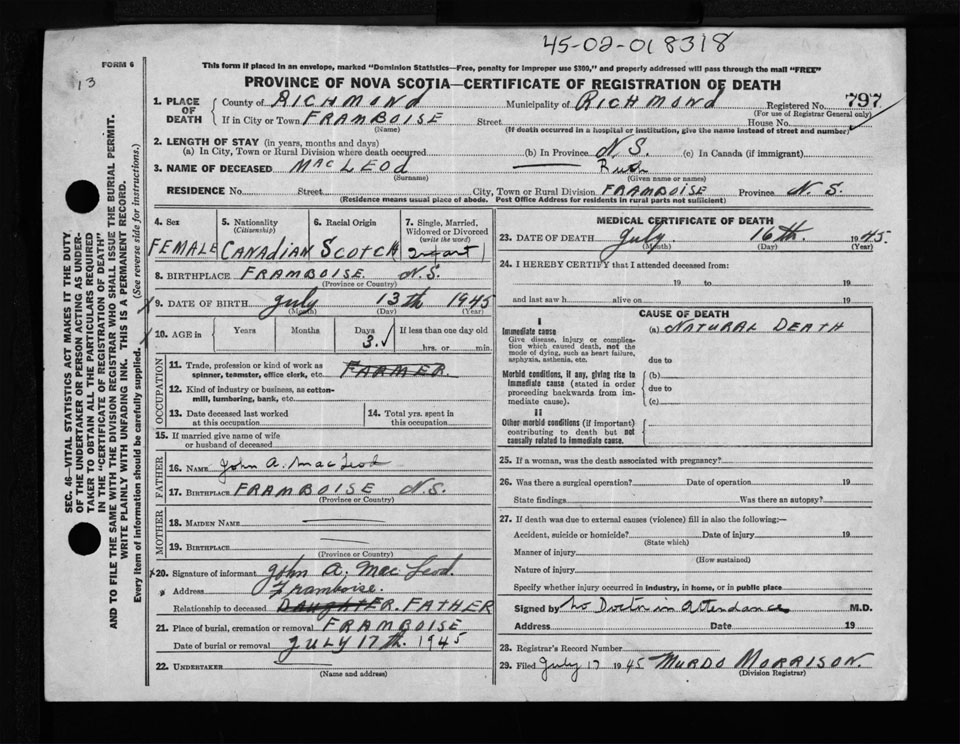 45-02-018318
FORM 6
13
This form if placed in an envelope, marked "Dominion Statistics—Free, penalty for improper use $300," and properly addressed will pass through the mail "FREE"
PROVINCE OF NOVA SCOTIA—CERTIFICATE OF REGISTRATION OF DEATH
SEC. 46—VITAL STATISTICS ACT MAKES IT THE DUTY
OF THE UNDERTAKER OR PERSON ACTING AS UNDER-
TAKER TO OBTAIN ALL THE PARTICULARS REQUIRED
IN THE "CERTIFICATE OF REGISTRATION OF DEATH"
AND TO FILE THE SAME WITH THE DIVISION REGISTRAR WHO SHALL ISSUE THE BURIAL PERMIT.
WRITE PLAINLY WITH UNFADING INK. THIS IS A PERMANENT RECORD.
Every item of information should be carefully supplied. (See reverse side for instructions.)
1. PLACE OF DEATH County of RICHMOND Municipality of RICHMOND Registered No. 797
(For use of Registrar General only)
If in City or Town FRAMBOISE Street House No.
(Name) (If death occurred in a hospital or institution, give the name instead of street and number)
2. LENGTH OF STAY (in years, months and days)
(a) In City, Town or Rural Division where death occurred (b) In Province N.S. (c) In Canada (if immigrant)
3. NAME OF DECEASED MacLEOd
(Surname) (Given name or names)
RESIDENCE No. Street City, Town or Rural Division FRAMBOISE Province N.S.
(Residence means usual place of abode. Post Office Address for residents in rural parts not sufficient)
4. Sex 5. Nationality (Citizenship) 6. Racial Origin 7. Single, Married, Widowed or Divorced (write the word)
FEMALE CANADIAN SCOTCH Infant
8. BIRTHPLACE FRAMBOISE. N.S.
(Province or Country)
x 9. DATE OF BIRTH July 13th 1945
(Month) (Day) (Year)
x 10. AGE in Years Months Days 3. ✓ If less than one day old
hrs. or min.
OCCUPATION
11. Trade, profession or kind of work as spinner, teamster, office clerk, etc. FARMER.
12. Kind of industry or business, as cotton-mill, lumbering, bank, etc.
13. Date deceased last worked at this occupation 14. Total yrs. spent in this occupation
15. If married give name of wife or husband of deceased
FATHER
16. NAME John A. MacLeod
17. BIRTHPLACE FRAMBOISE N.S.
(Province or Country)
MOTHER
18. MAIDEN NAME
19. BIRTHPLACE
(Province or Country)
x 20. Signature of informant John A. MacLeod.
x Address Framboise.
Relationship to deceased DAUGHTER. FATHER
21. Place of burial, cremation or removal FRAMBOISE
Date of burial or removal JULY 17th. 1945
22. UNDERTAKER
(Name and address)
MEDICAL CERTIFICATE OF DEATH
23. DATE OF DEATH July. 16th. 1945.
(Month) (Day) (Year)
24. I HEREBY CERTIFY that I attended deceased from:
19 to 19
and last saw h alive on 19
CAUSE OF DEATH
I
Immediate cause (a) NATURAL DEATH
Give disease, injury or complica-
tion which caused death, not the
mode of dying, such as heart failure,
asphyxia, asthenia, etc. due to
Morbid conditions, if any, giving rise to (b)
immediate cause (stated in order due to
proceeding backwards from im-
mediate cause). (c)
II
Other morbid conditions (if important)
contributing to death but not
causally related to immediate cause.
25. If a woman, was the death associated with pregnancy?
26. Was there a surgical operation? Date of operation 19
State findings Was there an autopsy?
27. If death was due to external causes (violence) fill in also the following:—
Accident, suicide or homicide? Date of injury 19
(State which)
Manner of injury
(How sustained)
Nature of injury
Specify whether injury occurred in industry, in home, or in public place
Signed by No Doctor in Attendance M.D.
Address Date 19
28. Registrar's Record Number
29. Filed July 17 1945 MURDO MORRISON.
(Division Registrar)